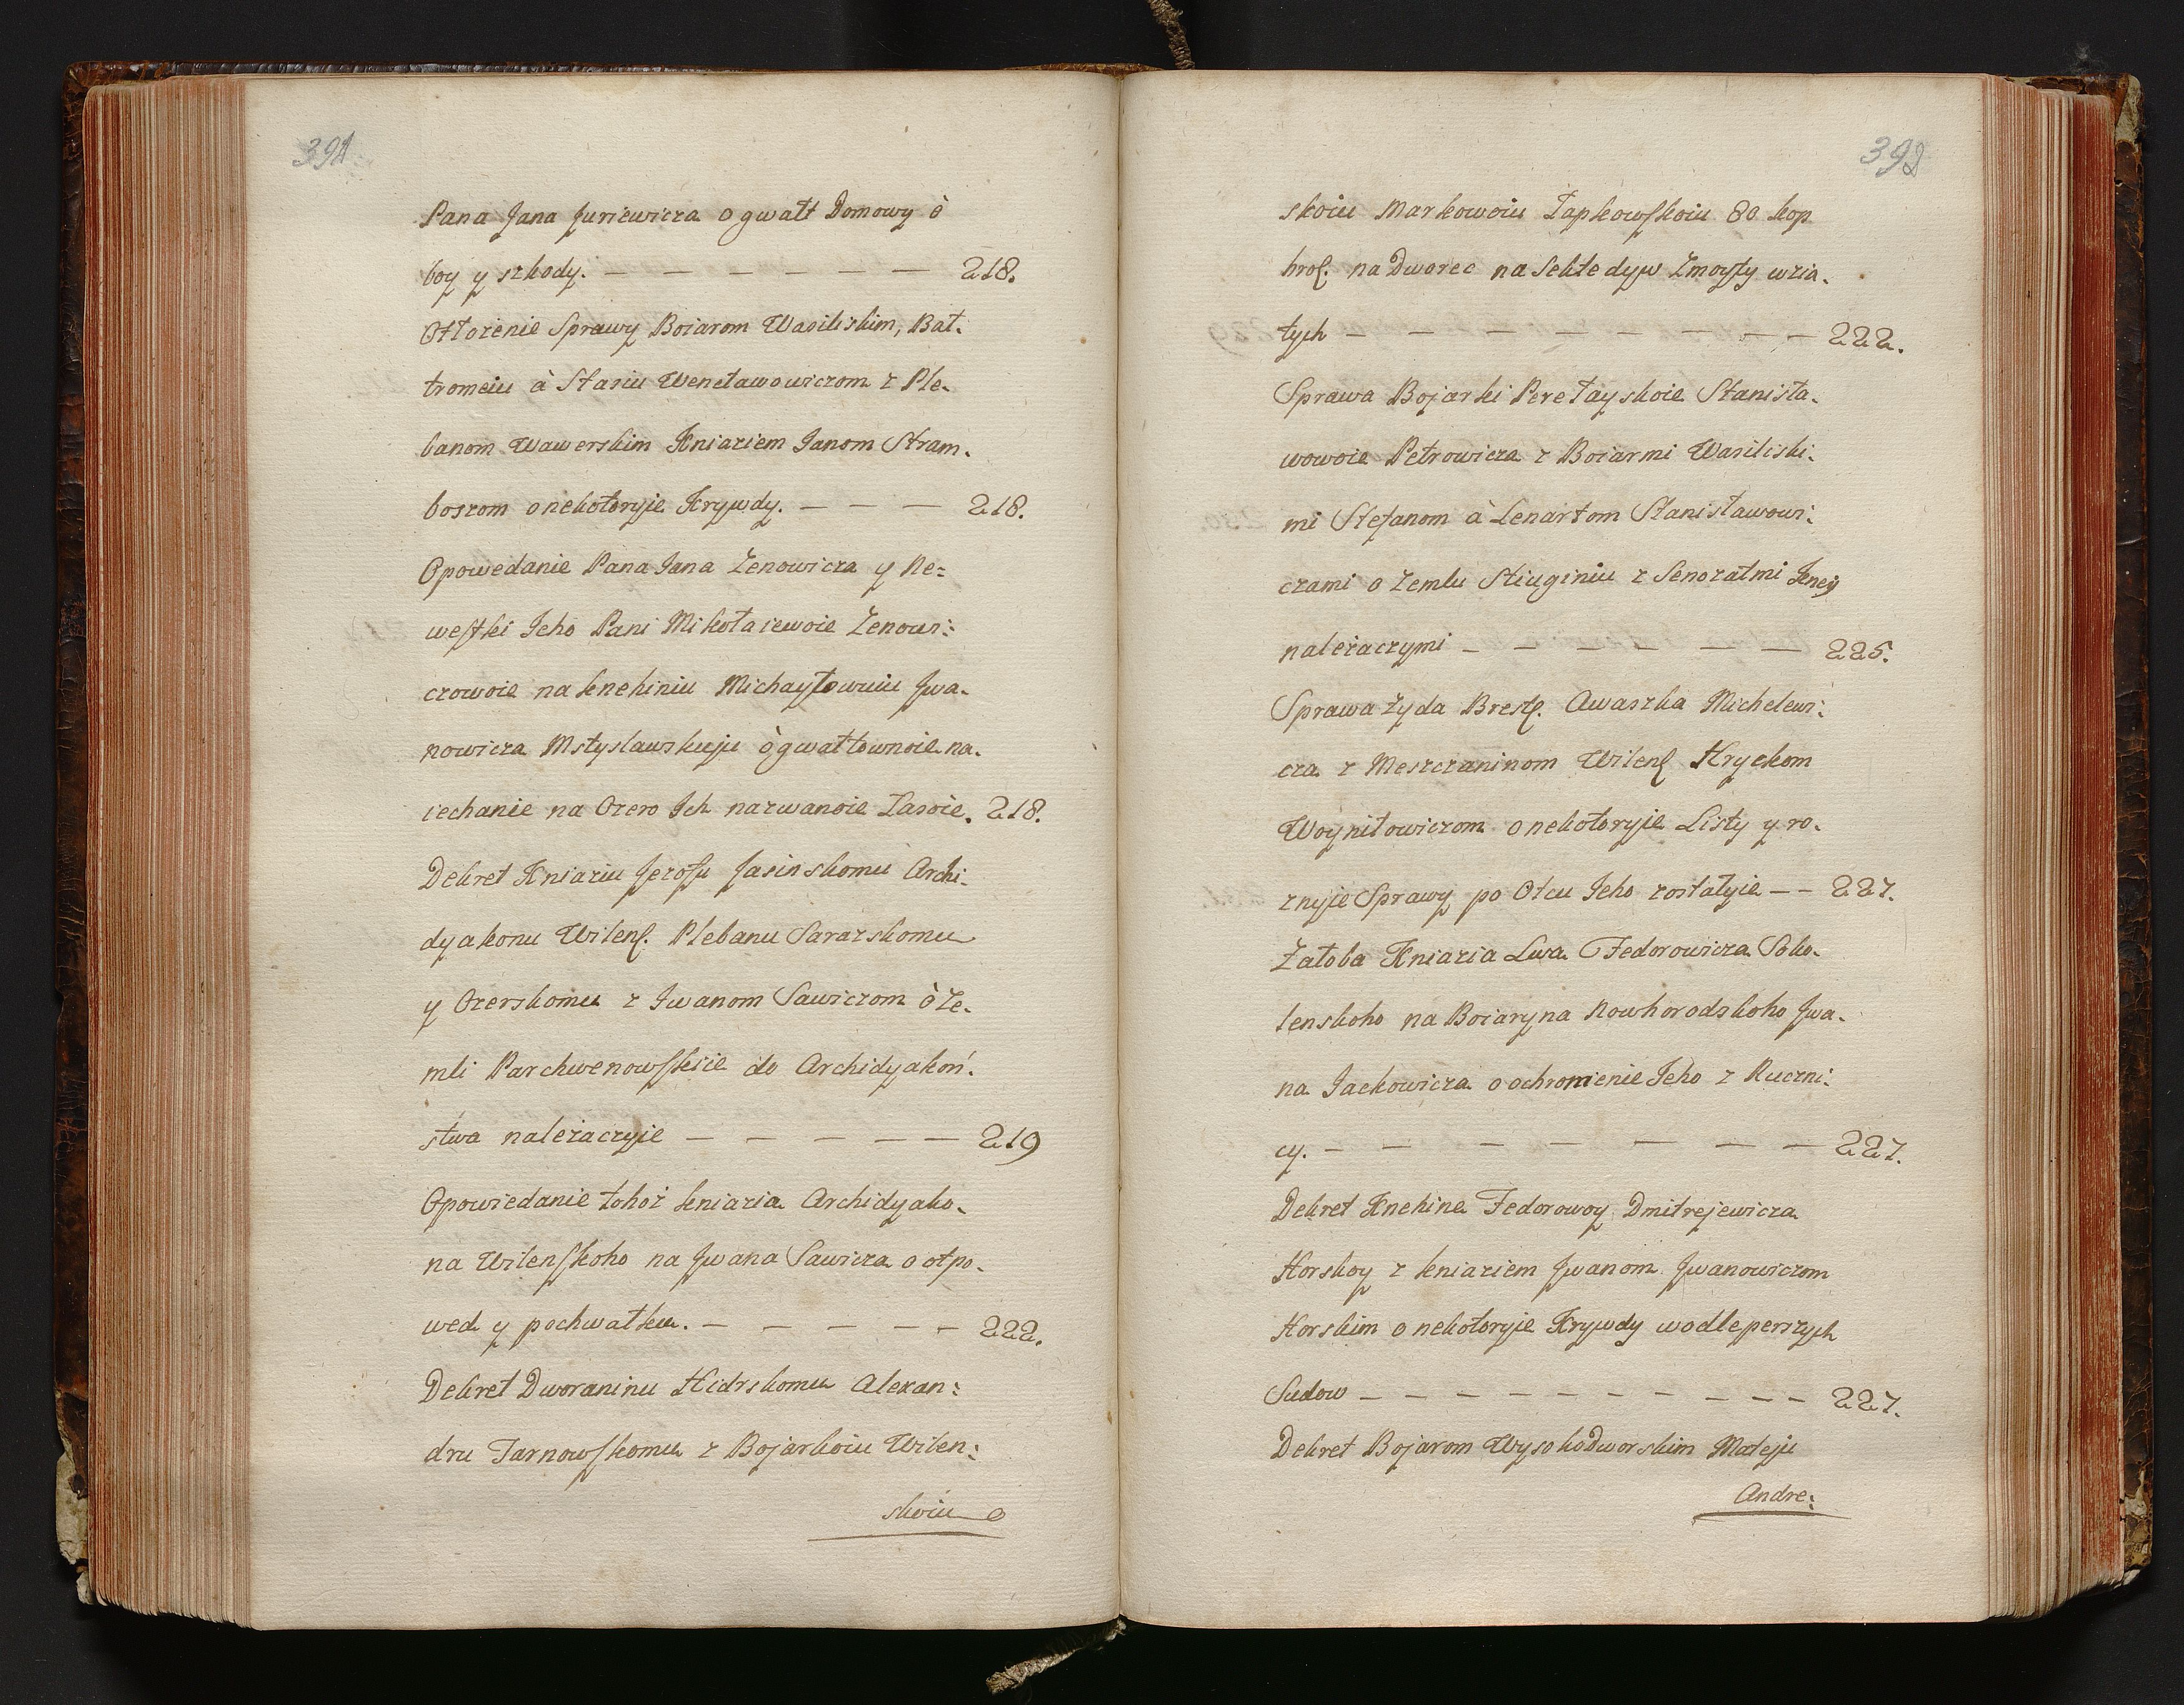 391
Pana Jana Juriewicza o gwałt Domowy ò
boy y szkody. — — — — — — 218.
Otłożenie Sprawy Boiarom Wasiliskim, Bał-
tromeiu à Stasiu Wencławowiczom z Ple-
banom Wawerskim Kniaziem Janom Stram-
boszom o nekotoryje Krywdy. — — — 218.
Opowedanie Pana Jana Zenowicza y Ne=
westki Jeho Pani Mikołaiewoie Zenowi=
czowoie na knehiniu Michayłowuiu Jwa-
nowicza Mstyslawskuju ò gwałtownoie na-
iechanie na Ozero Jch nazwanoie Łasoie. 218.
Dekret Kniaziu Jezofu Jasinskomu Archi-
dyakonu Wilens. Plebanu Sarazskomu
y Ozerskomu z Jwanom Sawiczom ò Ze-
mli Parchwenowskie do Archidyakoń-
stwa należaczyie — — — — — 219
Opowiedanie tohoż kniazia Archidyako-
na Wilenskoho na Jwana Sawicza o otpo-
wed y pochwałku. — — — — — 222.
Dekret Dworaninu Hidrskomu Alexan=
dru Tarnowskomu z Bojarkoiu Wilen=
skoiu o
392
skoiu Markowoiu Łapkowskoiu 80 kop
hros. na Dworec na Sekłedyw Zmoysty wzia-
tych — — — — — — — — 222.
Sprawa Bojarki Perełayskoie Stanisła-
wowoie Petrowicza z Boiarmi Wasiliski-
mi Stefanom à Lenartom Stanisławowi-
czami o Zemlu Stiuginiu z Senozatmi Jeney
należaczymi — — — — — — 225.
Sprawa Żyda Brests. Awaszka Michelewi-
cza z Meszczaninom Wilens Hryckom
Woyniłowiczom o nekotoryje Listy y ro-
znyie Sprawy po Otcu Jeho zostałyie — — 227.
Żałoba Kniazia Lwa Fedorowicza Soko-
lenskoho na Boiaryna Nowhorodskoho Jwa-
na Jackowicza o ochromienie Jeho z Ruczni-
cy. — — — — — — — 227.
Dekret Knehine Fedorowoy Dmitrejewicza
Horskoy z kniaziem Jwanom Jwanowiczom
Horskim o nekotoryie Krywdy wodle perszych
Sudow — — — — — — — — — — 227.
Dekret Bojarom Wysokodworskim Mateju
Andre=